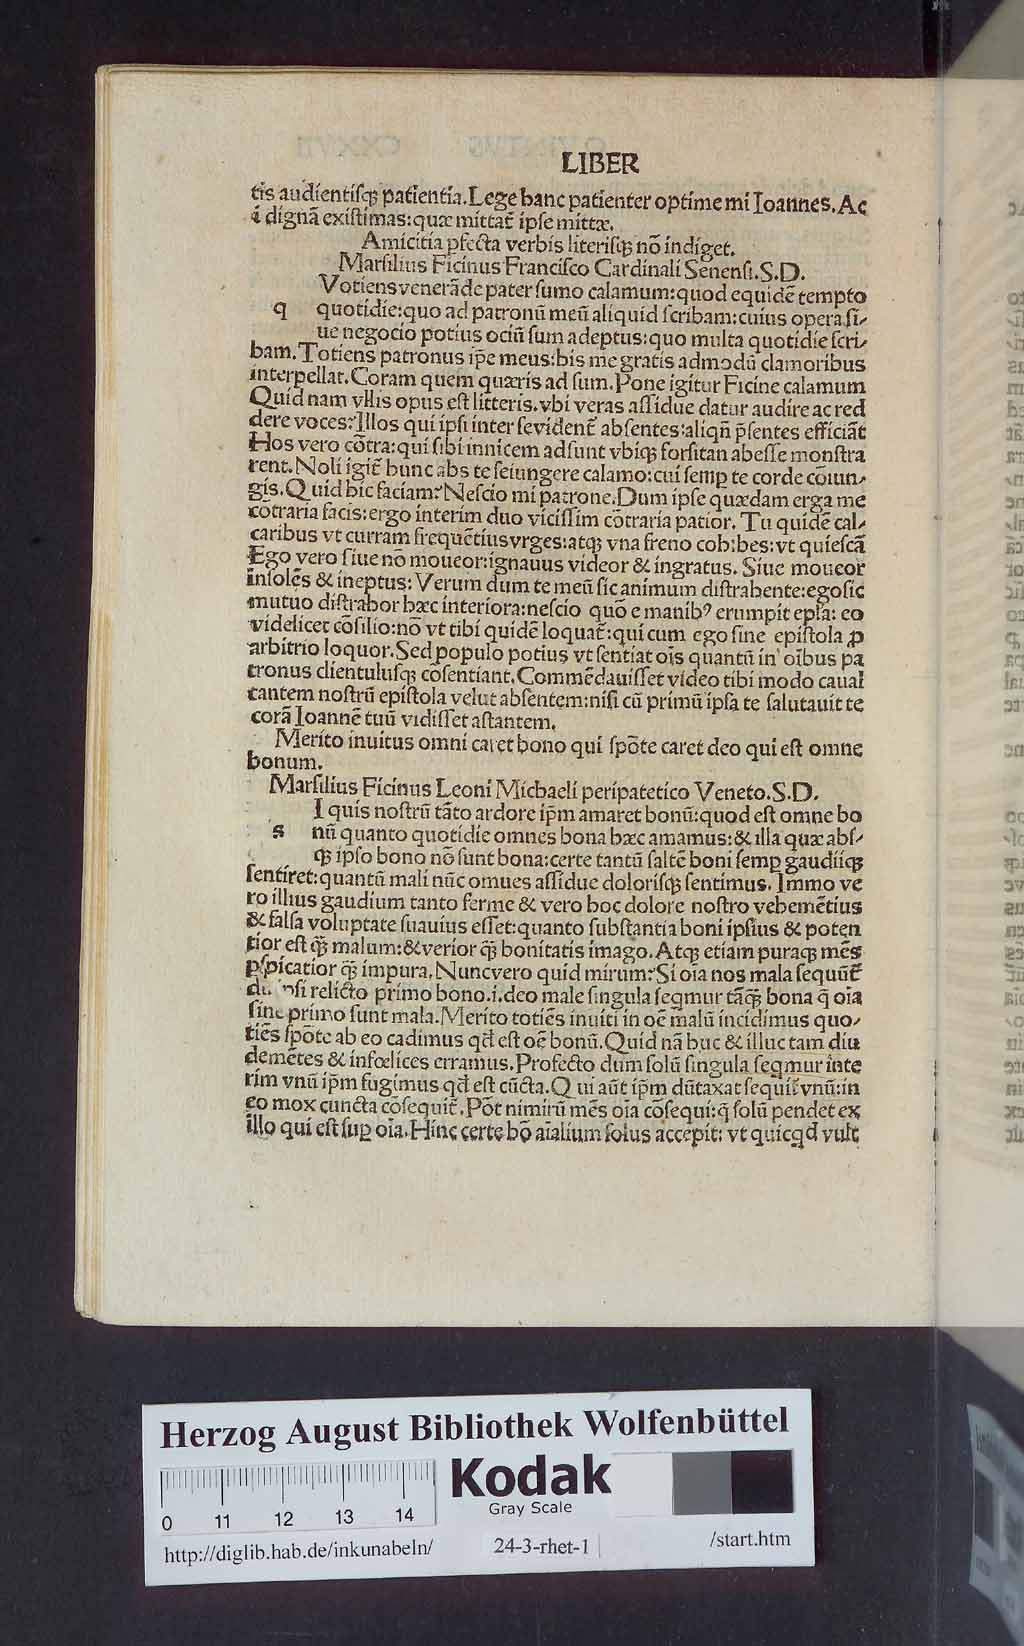 LIBER
tis audientisq̃ patientia.Lege hanc patienter optime mi Ioannes.Ac
i dignã existimas:quæ mittat̃ ipse mittæ.
Amicitia ꝑfecta verbis literisq̃ nõ indiget.
Marsilius Ficinus Francisco Cardinali Senensi.S.D.
Votiens venerãde pater sumo calamum:quod equidẽ tempto
q quotidie:quo ad patronũ meũ aliquid scribam:cuius opera si/
ue negocio potius ociũ sum adeptus:quo multa quotidie scri/
bam.Totiens patronus ip̃e meus:his me gratis admodũ clamoribus
interpellat.Coram quem quæris ad sum.Pone igitur Ficine calamum
Quid nam vllis opus est litteris.vbi veras assidue datur audire ac red
dere voces?Illos qui ipsi inter se vident̃ absentes:aliqñ p̃sentes efficiãt
Hos vero cõtra:qui sibi innicem adsunt vbiq̃ forsitan abesse monstra
rent.Noli igit̃ hunc abs te seiungere calamo:cui semꝑ te corde cõiun/
gis.Quid hic faciam?Nescio mi patrone.Dum ipse quædam erga me
cõtraria facis:ergo interim duo vicissim cõtraria patior.Tu quidẽ cal/
caribus vt curram frequẽtius vrges:atq̃ vna freno cohibes:vt quiescã
Ego vero siue nõ moueor:ignauus videor & ingratus. Siue moueor
insolẽs & ineptus: Verum dum te meũ sic animum distrahente:ego sic
mutuo distrahor hæc interiora:nescio quõ e manibꝰ erumpit epl̃a: eo
videlicet cõsilio:nõ vt tibi quidẽ loquat̃:qui cum ego sine epistola ꝓ
arbitrio loquor.Sed populo potius vt sentiat oĩs quantũ in oĩbus pa
tronus clientulusq̃ cõsentiant.Commẽdauisset video tibi modo caual
cantem nostrũ epistola velut absentem:nisi cũ primũ ipsa te salutauit te
corã Ioannẽ tuũ vidisset astantem.
Merito inuitus omni caret bono qui spõte caret deo qui est omne
bonum.
Marsilius Ficinus Leoni Michaeli peripatetico Veneto.S.D.
I quis nostrũ tãto ardore ip̃m amaret bonũ:quod est omne bo
s nũ quanto quotidie omnes bona hæc amamus:& illa quæ abs/
q̃ ipso bono nõ sunt bona:certe tantũ saltẽ boni semꝑ gaudiiq̃
sentiret:quantũ mali nũc omues assidue dolorisq̃ sentimus. Immo ve
ro illius gaudium tanto ferme & vero hoc dolore nostro vehemẽtius
& falsa voluptate suauius esset:quanto substantia boni ipsius & poten
tior est q̃ malum:& verior q̃ bonitatis imago.Atq̃ etiam puraq̃ mẽs
ꝑspicatior q̃ impura.Nunc vero quid mirum?Si oĩa nos mala sequũt̃
relicto primo bono.i.deo male singula seqmur tãq̃ bona q̃ oĩa
sine primo sunt mala.Merito totiẽs inuiti in oẽ malũ incidimus quo/
tiẽs spõte ab eo cadimus qd̃ est oẽ bonũ.Quid nã huc & illuc tam diu
demẽtes & infœlices erramus.Profecto dum solũ singula seqmur inte
rim vnũ ip̃m fugimus qd̃ est cũcta.Qui aũt ip̃m dũtaxat sequit̃ vnũ:in
eo mox cuncta cõsequit̃.Põt nimirũ mẽs oĩa cõsequi:q̃ solũ pendet ex
illo qui est suꝑ oĩa.Hinc certe hõ aĩalium solus accepit: vt quicqd vult
Herzog August Bibliothek Wolfenbüttel
Kodak
Gray Scale
0 11 12 13 14
http://diglib.hab.de/inkunabeln/ 24-3-rhet-1 /start.htm